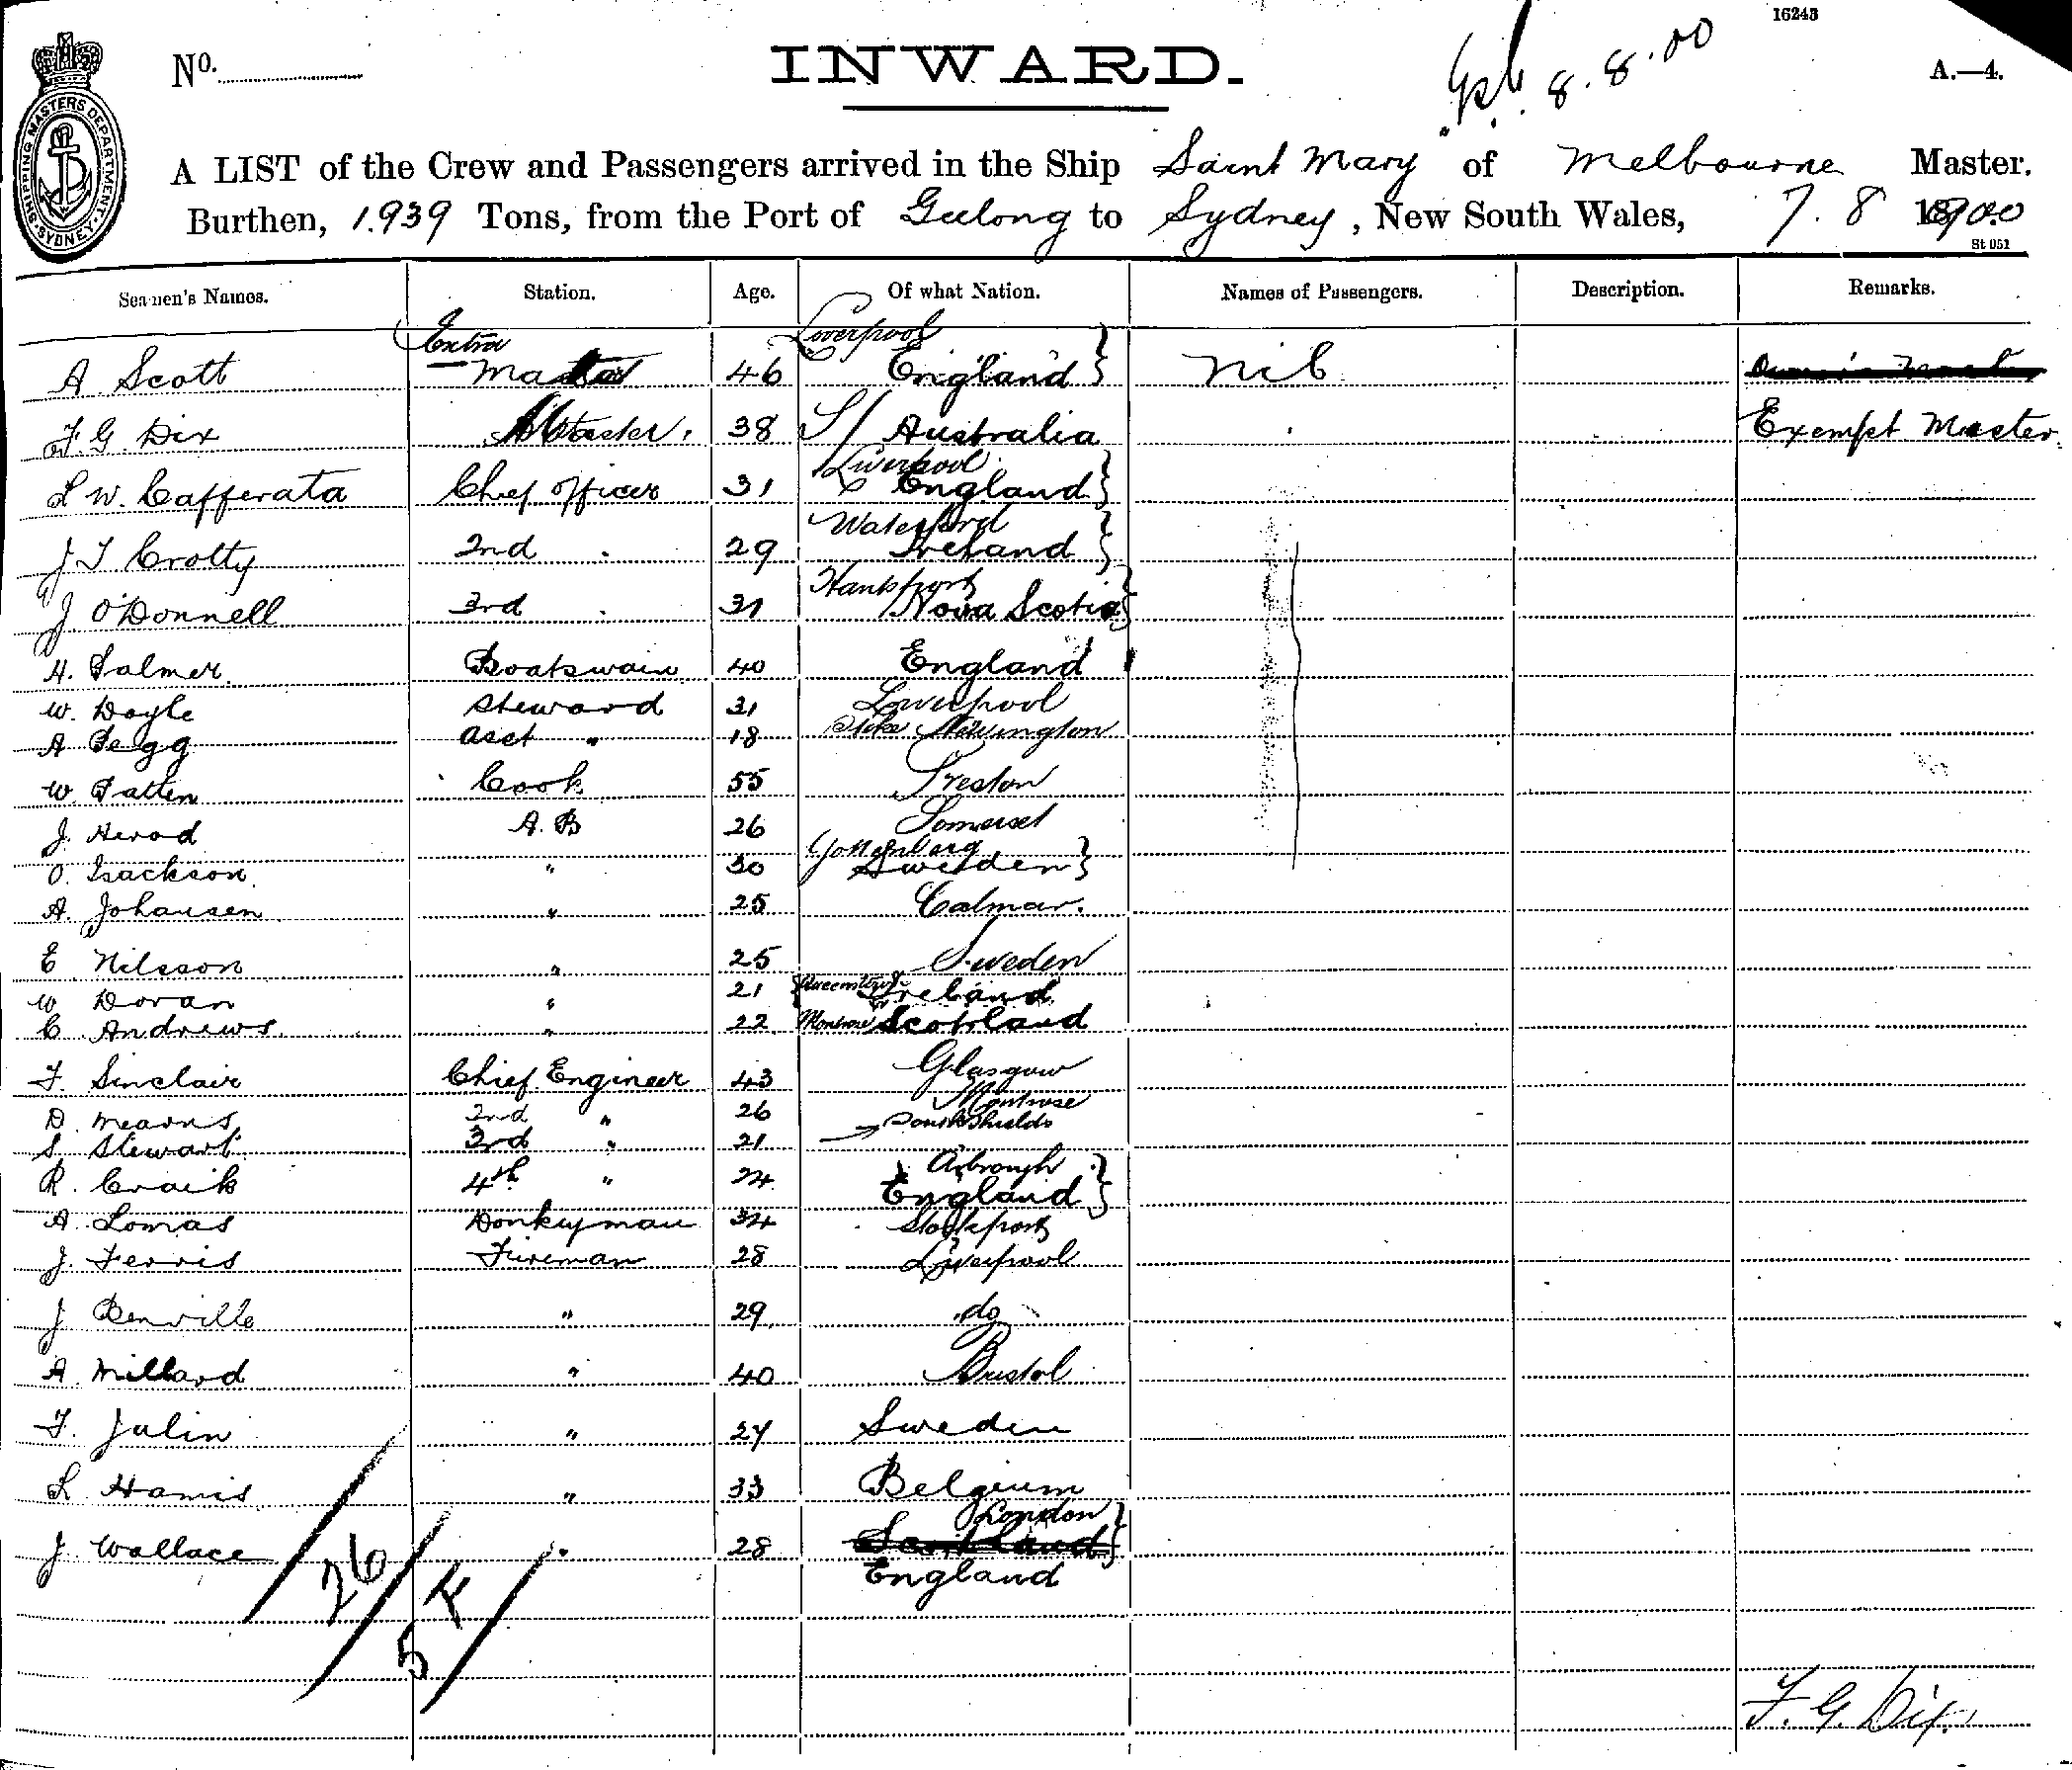 16243
No.
INWARD.
8.8.00
A.—4.
SHIPPING MASTERS DEPARTMENT. SYDNEY.
A LIST of the Crew and Passengers arrived in the Ship "Saint Mary" of Melbourne Master.
Burthen, 1.939 Tons, from the Port of Geelong to Sydney, New South Wales, 7. 8 1900
St 051
Seamen's Names. Station. Age. Of what Nation. Names of Passengers. Description. Remarks.
Extra Liverpool
A. Scott Master 46 England } Nil
F. G. Dix Master. 38 S/ Australia Exempt Master
Liverpool
L W. Cafferata Chief Officer 31 England }
Waterford
J T Crotty 2nd " 29 Ireland }
Hantsport
J O'Donnell 3rd " 31 Nova Scotia }
H. Palmer Boatswain 40 England
W. Doyle Steward 31 Liverpool
A Pegg Asst " 18 Stoke Newington
W. Patten Cook 55 Preston
J. Herod A.B 26 Somerset
Gottenberg
O. Isackson " 30 Sweden }
A. Johansen " 25 Calmar.
E Nilsson " 25 Sweden
W Doran " 21 Queenstown Ireland
C. Andrews " 22 Montrose Scotland
F. Sinclair Chief Engineer 43 Glasgow
D. Mearns 2nd " 26 Montrose
S. Stewart 3rd " 21 South Shields
R. Craik 4th " 24 Arbroagh
England }
A. Lomas Donkeyman 34 Stockport
J. Ferris Fireman 28 Liverpool
J Benville " 29 do
A. Millard " 40 Bristol
F. Julin " 27 Sweden
L Hamis " 33 Belgium
London
J. Wallace " 28 Scotland }
England
26
5
F. G. Dix.